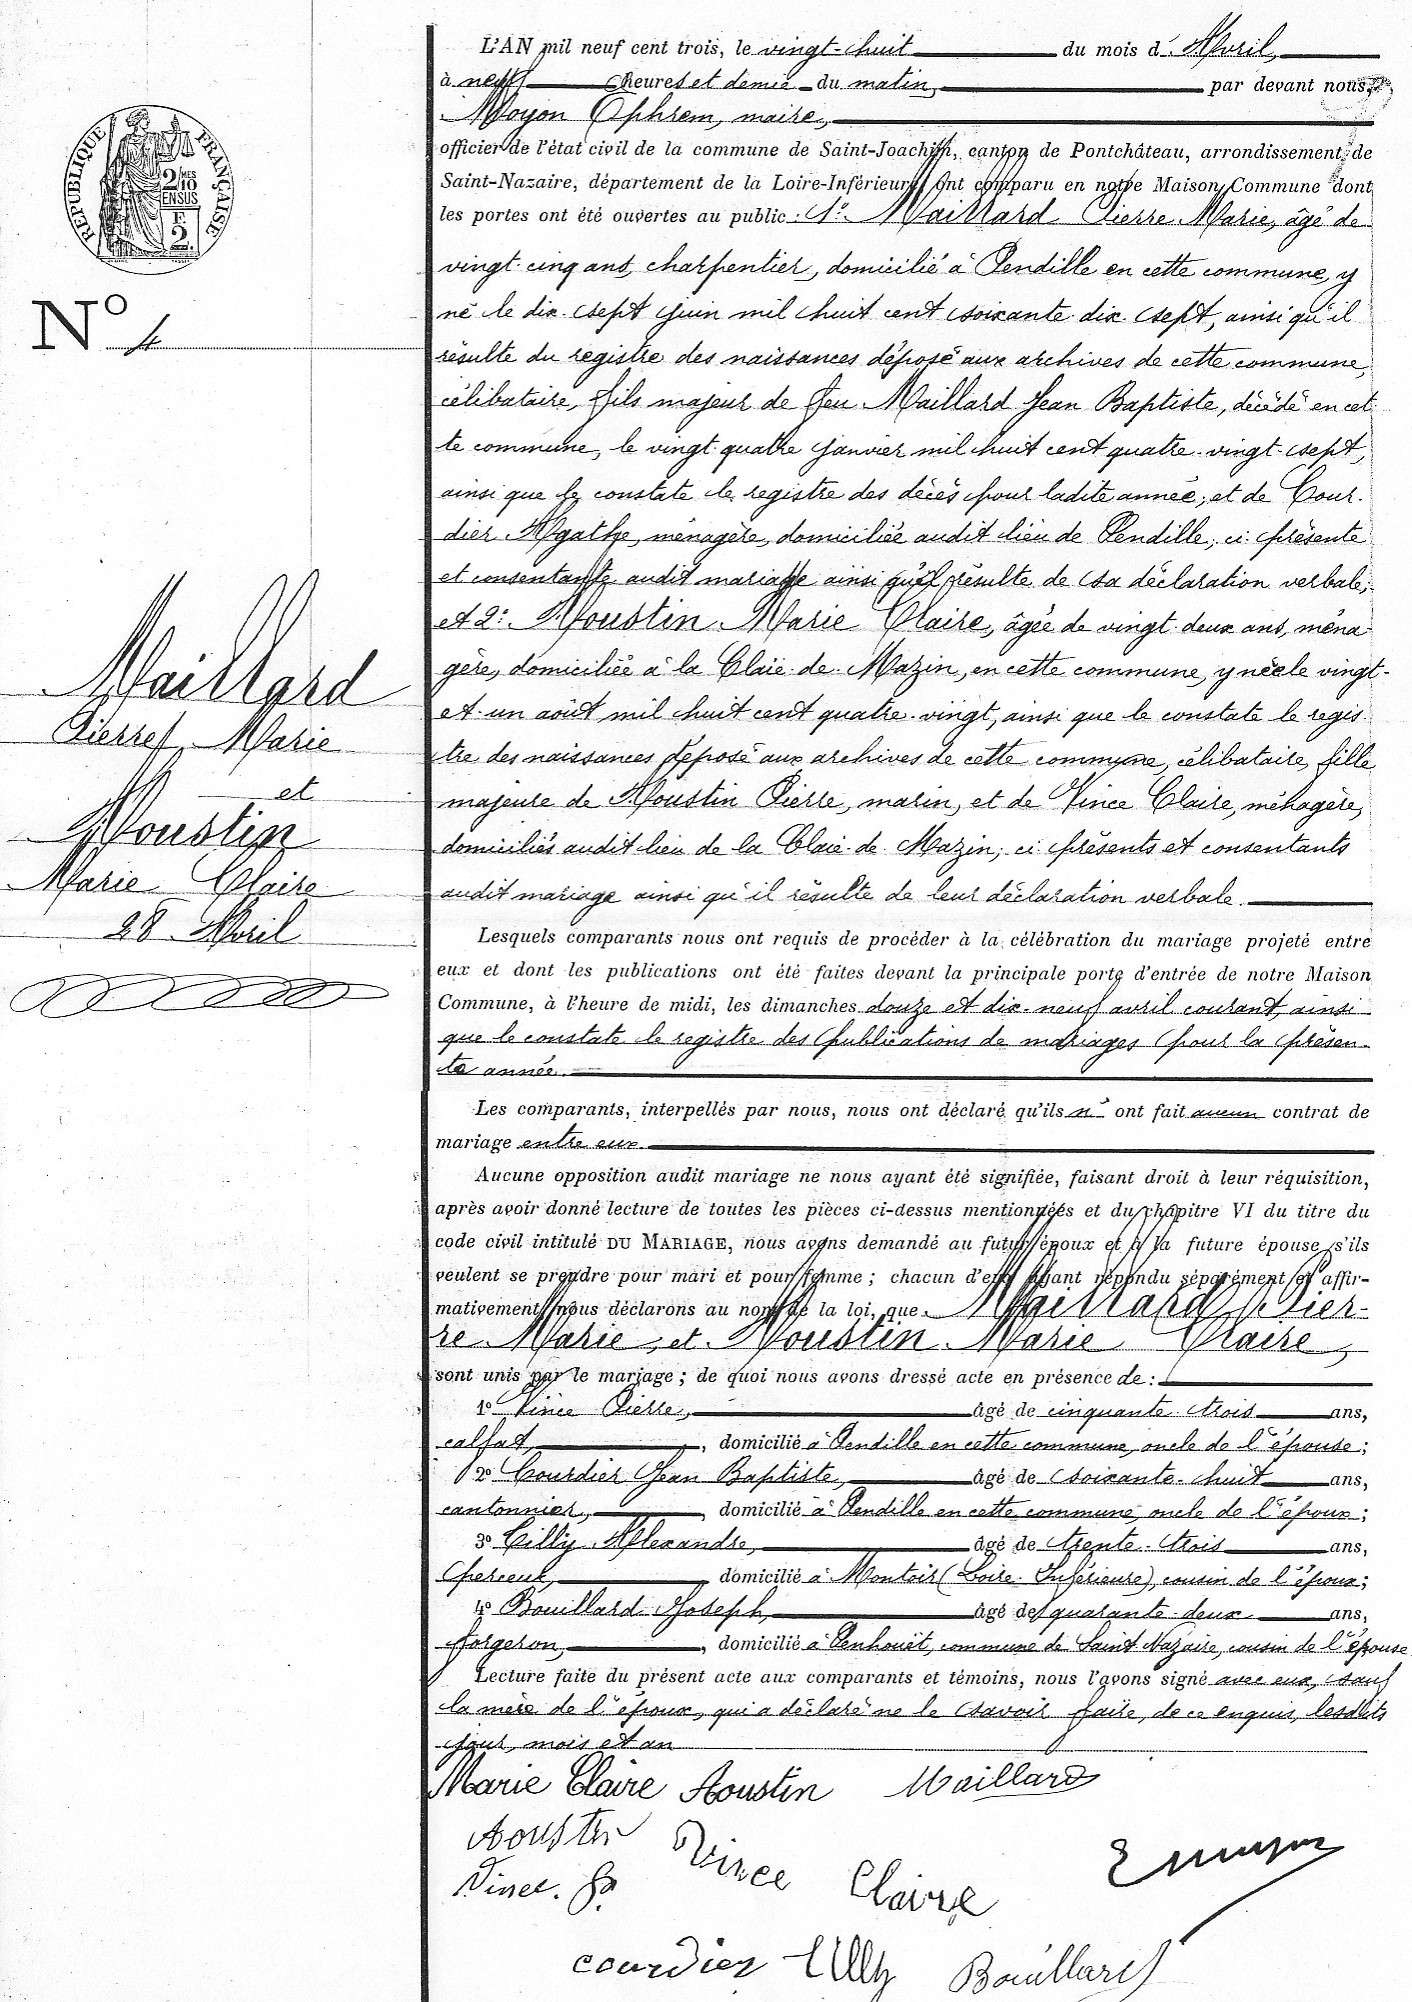 L'AN mil neuf cent trois, le vingt-huit du mois d'Avril,
à neuf heures et demie du matin, par devant nous,
Moyon Ephrem, maire,
officier de l'état civil de la commune de Saint-Joachim, canton de Pontchâteau, arrondissement de
Saint-Nazaire, département de la Loire-Inférieure, ont comparu en notre Maison Commune dont
les portes ont été ouvertes au public : 1º Maillard Pierre Marie, âgé de
vingt-cinq ans, charpentier, domicilié à Pendille en cette commune, y
né le dix-sept juin mil huit cent soixante-dix-sept, ainsi qu'il
résulte du registre des naissances déposé aux archives de cette commune,
célibataire, fils majeur de feu Maillard Jean Baptiste, décédé en cet-
te commune, le vingt-quatre janvier mil huit cent quatre-vingt-sept,
ainsi que le constate le registre des décès pour ladite année; et de Cour-
dier Agathe, ménagère, domiciliée audit lieu de Pendille, ci présente
et consentante audit mariage ainsi qu'il résulte de sa déclaration verbale;
et 2º Aoustin Marie Claire, âgée de vingt-deux ans, ména-
gère, domiciliée à la Claie-de-Mazin, en cette commune, y née le vingt-
et-un août mil huit cent quatre-vingt, ainsi que le constate le regis-
tre des naissances déposé aux archives de cette commune, célibataire, fille
majeure de Aoustin Pierre, marin, et de Vince Claire, ménagère,
domiciliés audit lieu de la Claie-de-Mazin, ci présents et consentants
audit mariage ainsi qu'il résulte de leur déclaration verbale.
Lesquels comparants nous ont requis de procéder à la célébration du mariage projeté entre
eux et dont les publications ont été faites devant la principale porte d'entrée de notre Maison
Commune, à l'heure de midi, les dimanches douze et dix-neuf avril courant, ainsi
que le constate le registre des publications de mariages pour la présen-
te année.
Les comparants, interpellés par nous, nous ont déclaré qu'ils n'ont fait aucun contrat de
mariage entre eux.
Aucune opposition audit mariage ne nous ayant été signifiée, faisant droit à leur réquisition,
après avoir donné lecture de toutes les pièces ci-dessus mentionnées et du chapitre VI du titre du
code civil intitulé DU MARIAGE, nous avons demandé au futur époux et à la future épouse s'ils
veulent se prendre pour mari et pour femme ; chacun d'eux ayant répondu séparément et affir-
mativement, nous déclarons au nom de la loi, que Maillard Pier-
re Marie, et Aoustin Marie Claire,
sont unis par le mariage ; de quoi nous avons dressé acte en présence de :
1º Vince Pierre, âgé de cinquante-trois ans,
calfat, domicilié à Pendille en cette commune, oncle de l'épouse;
2º Courdier Jean Baptiste, âgé de soixante-huit ans,
cantonnier, domicilié à Pendille en cette commune, oncle de l'époux;
3º Tilly Alexandre, âgé de trente-trois ans,
perceur, domicilié à Montoir (Loire-Inférieure), cousin de l'époux;
4º Bouillard Joseph, âgé de quarante-deux ans,
forgeron, domicilié à Penhouët, commune de Saint-Nazaire, cousin de l'épouse
Lecture faite du présent acte aux comparants et témoins, nous l'avons signé avec eux, sauf
la mère de l'époux, qui a déclaré ne le savoir faire, de ce enquis, lesdits
jour, mois et an
Marie Claire Aoustin Maillard
Aoustin Vince Claire E Moyon
Vince. P.
courdier Tilly Bouillard
RÉPUBLIQUE FRANÇAISE
2/10 MES
EN SUS
F.
2.
Nº 4
Maillard
Pierre Marie
et
Aoustin
Marie Claire
28 Avril